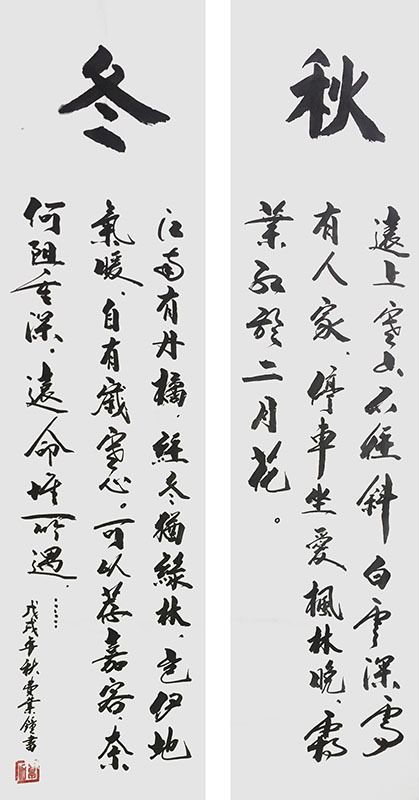 秋
遠上寒山石徑斜白雲深處
有人家、停車坐愛楓林晚、霜
葉紅於二月花。
冬
江南有丹橘，經冬猶綠林、豈伊地
氣暖、自有歲寒心。可以荐嘉客、奈
何阻重深、運命惟所遇、……
戊戌年秋業鐘書